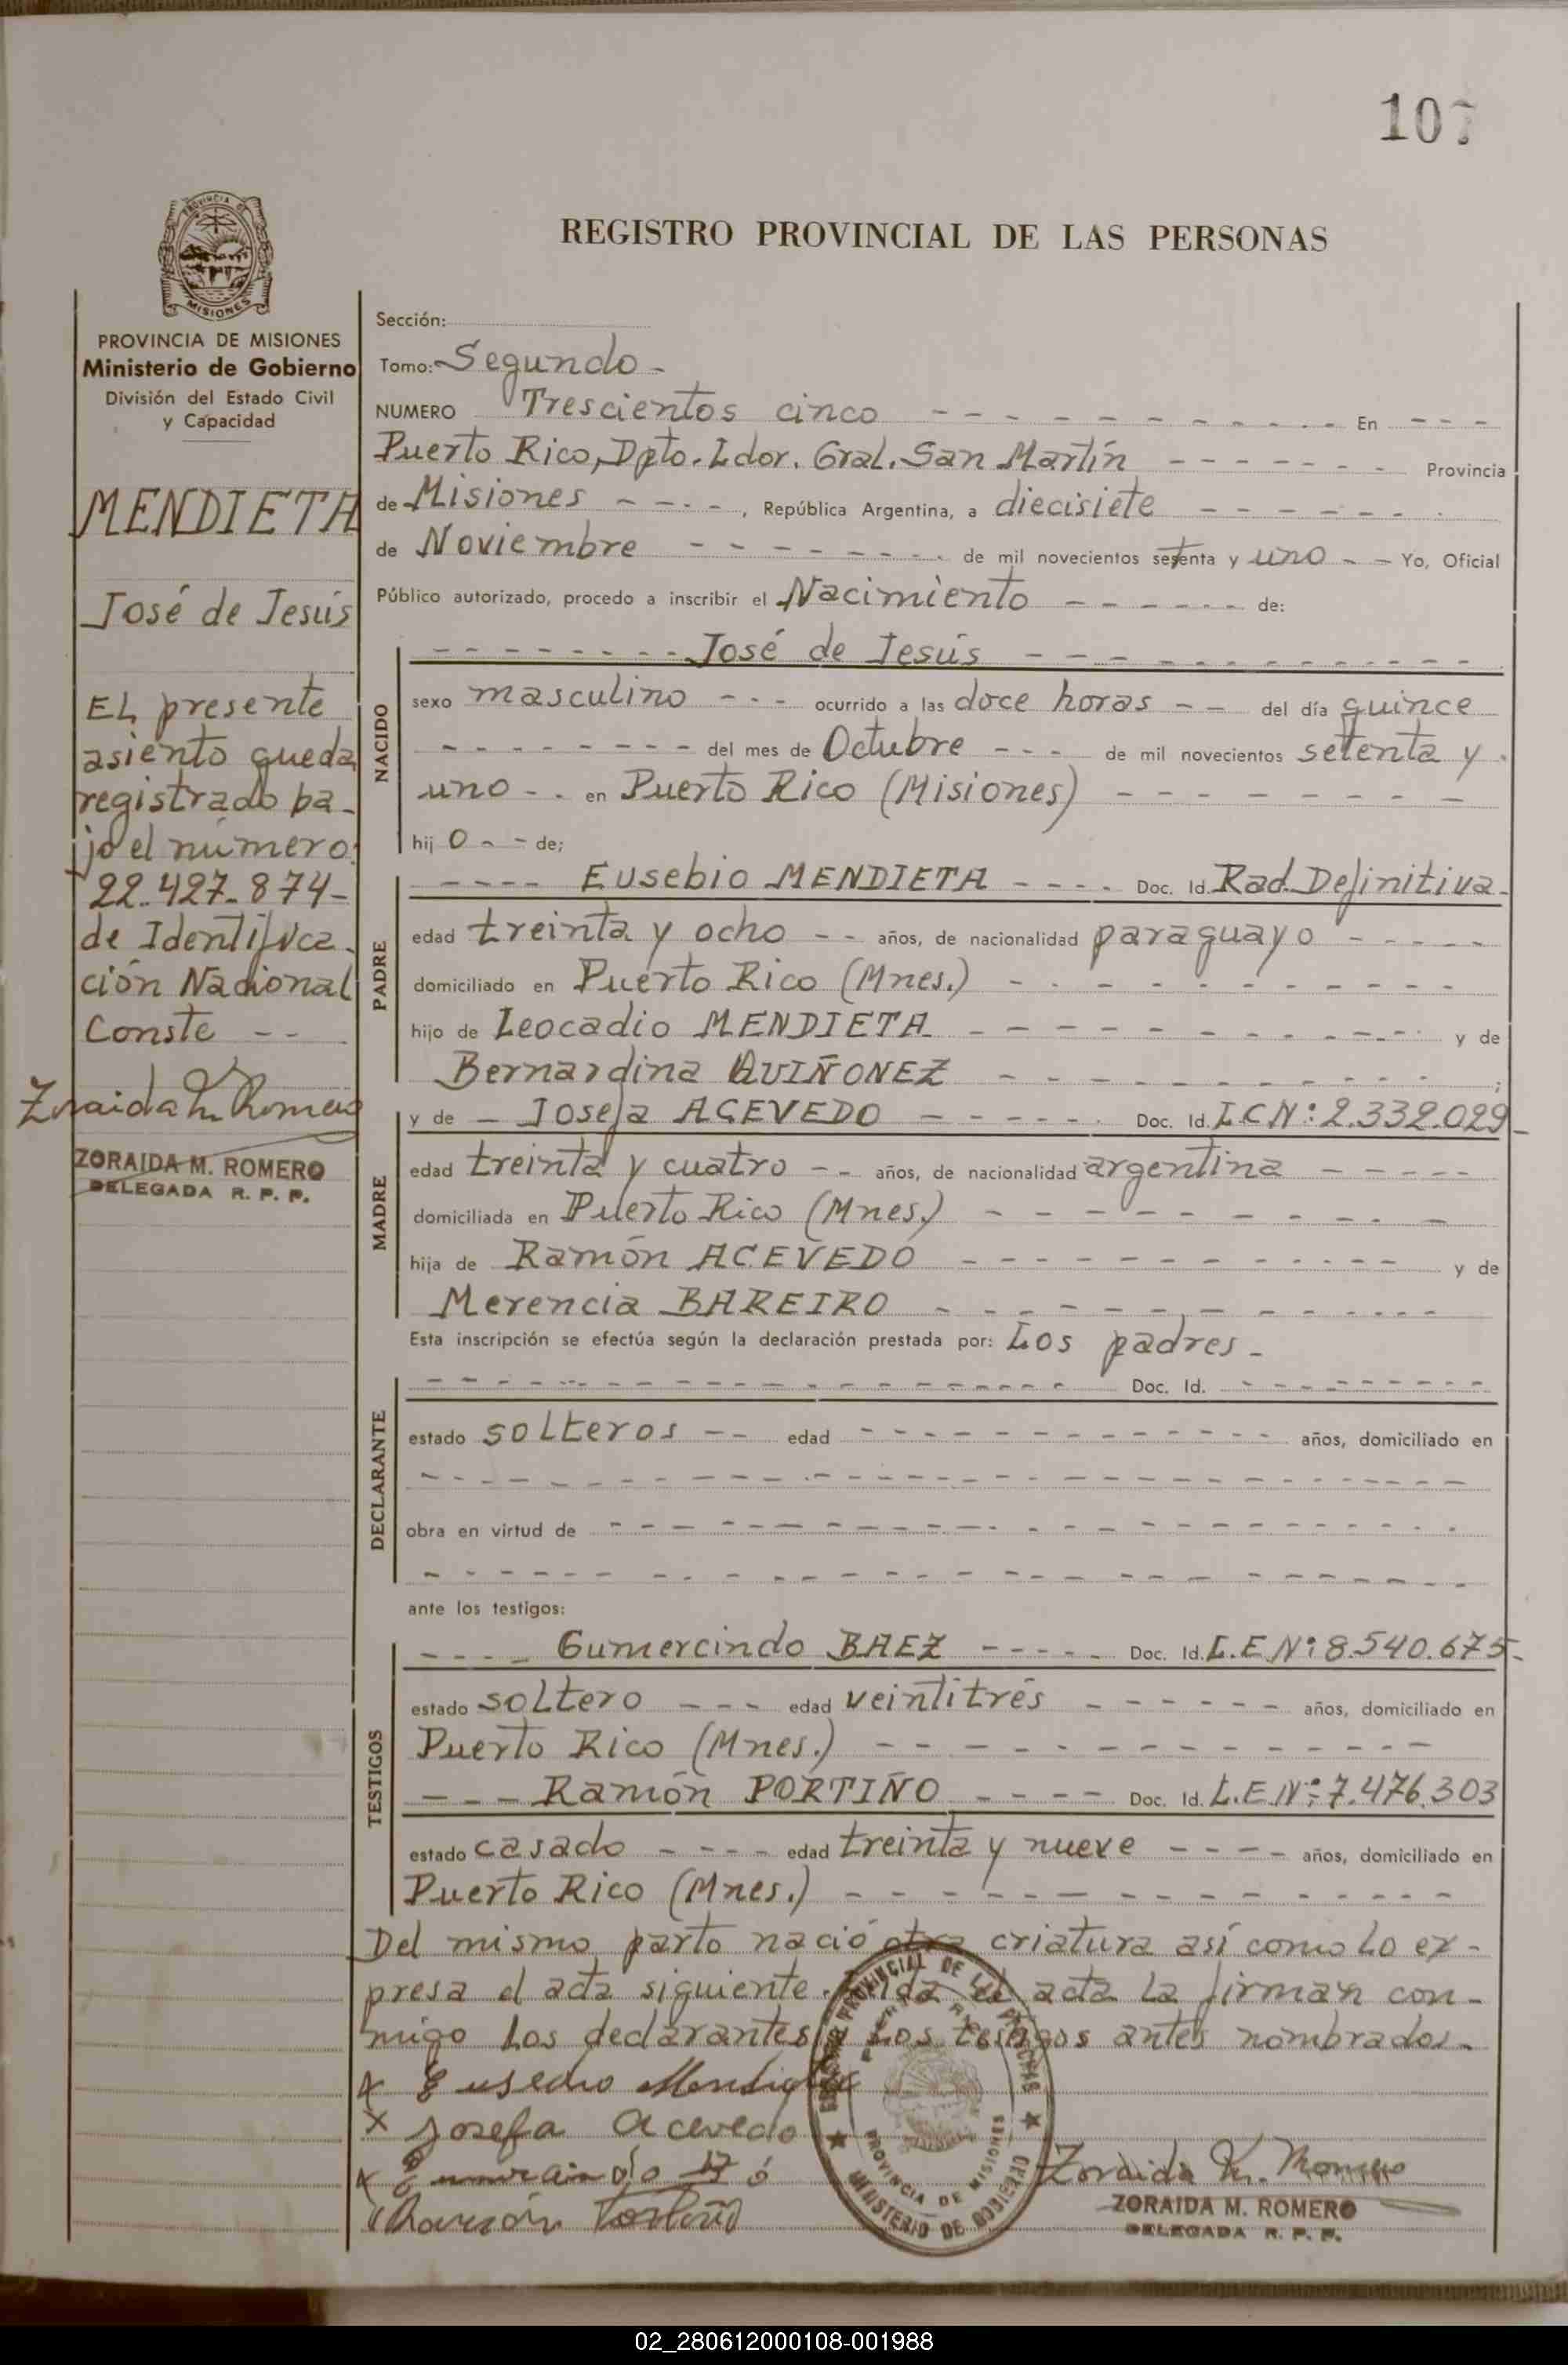 107
REGISTRO PROVINCIAL DE LAS PERSONAS
PROVINCIA DE MISIONES
PROVINCIA DE MISIONES
Ministerio de Gobierno
División del Estado Civil
y Capacidad
MENDIETA
José de Jesús
EL presente
asiento queda
registrado ba-
jo el número:
22.427.874-
de Identifica-
ción Nacional
Conste --
Zoraida M. Romero
ZORAIDA M. ROMERO
DELEGADA R. P. P.
Sección:
Tomo: Segundo -
NUMERO Trescientos cinco - - - En - - -
Puerto Rico, Dpto. Ldor. Gral. San Martín - - - Provincia
de Misiones - - - , República Argentina, a diecisiete - - -
de Noviembre - - - de mil novecientos setenta y uno - - Yo, Oficial
Público autorizado, procedo a inscribir el Nacimiento - - - de:
NACIDO
- - - José de Jesús - - -
sexo masculino - - - ocurrido a las doce horas - - del día quince
- - - del mes de Octubre - - - de mil novecientos setenta y
uno - - en Puerto Rico (Misiones) - - -
hij o - - de;
PADRE
- - - - Eusebio MENDIETA - - - - Doc. Id. Rad. Definitiva -
edad treinta y ocho - - años, de nacionalidad paraguayo - - -
domiciliado en Puerto Rico (Mnes.) - - -
hijo de Leocadio MENDIETA - - - y de
Bernardina QUIÑONEZ - - - ;
MADRE
y de - Josefa ACEVEDO - - - Doc. Id. L.C.Nº: 2.332.029 -
edad treinta y cuatro - - años, de nacionalidad argentina - - -
domiciliada en Puerto Rico (Mnes.) - - -
hija de Ramón ACEVEDO - - - y de
Merencia BAREIRO - - -
Esta inscripción se efectúa según la declaración prestada por: Los padres -
DECLARANTE
- - - Doc. Id. - - -
estado solteros - - edad - - - años, domiciliado en
- - -
obra en virtud de - - -
- - -
ante los testigos:
TESTIGOS
- - - - Gumercindo BAEZ - - - - - Doc. Id. L.E.Nº: 8.540.675 -
estado soltero - - - edad veintitrés - - - años, domiciliado en
Puerto Rico (Mnes.) - - -
- - - Ramón PORTIÑO - - - - Doc. Id. L.E.Nº: 7.476.303
estado casado - - - - edad treinta y nueve - - - - años, domiciliado en
Puerto Rico (Mnes.) - - -
Del mismo parto nació otra criatura así como lo ex-
presa el acta siguiente. Leída el acta la firman con-
migo los declarantes y los testigos antes nombrados. -
x Eusebio Mendieta
x Josefa Acevedo
Ramón Portiño
PROVINCIAL DE LAS PERSONAS
PROVINCIA DE MISIONES
MINISTERIO DE GOBIERNO
Zoraida M. Romero
ZORAIDA M. ROMERO
DELEGADA R. P. P.
02_280612000108-001988